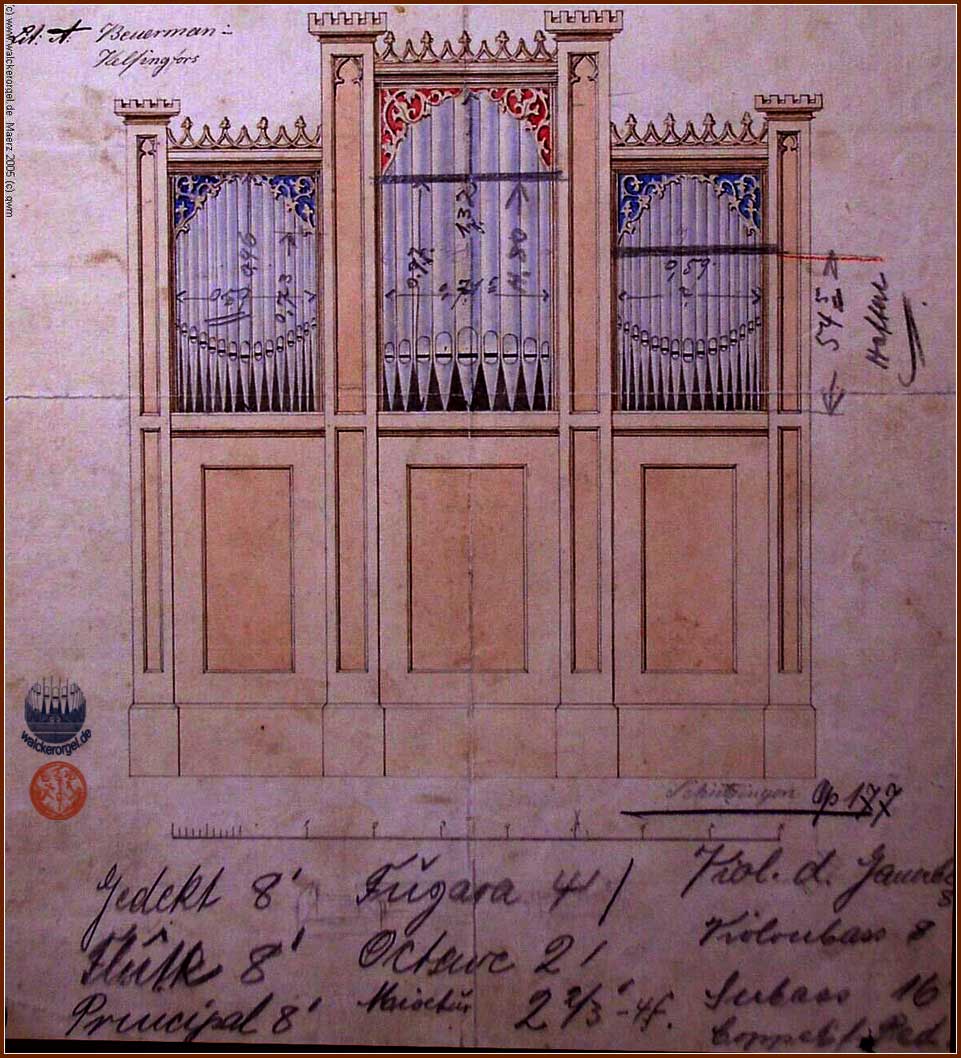 (c) www.walckerorgel.de Maerz 2005 (c) gwm
Lit. A Beuerman-
Helsingfors
0,96
0,59
0,73
132
0,59
545
walckerorgel.de
Schützingen Op 177
Gedekt 8' Fŭgara 4'
Viol. d. Gamba 8
Flûtte 8' Octave 2'
Violonbass 8
Principal 8' 2 2/3' - 4f.
Subass 16'
Coppel Ped